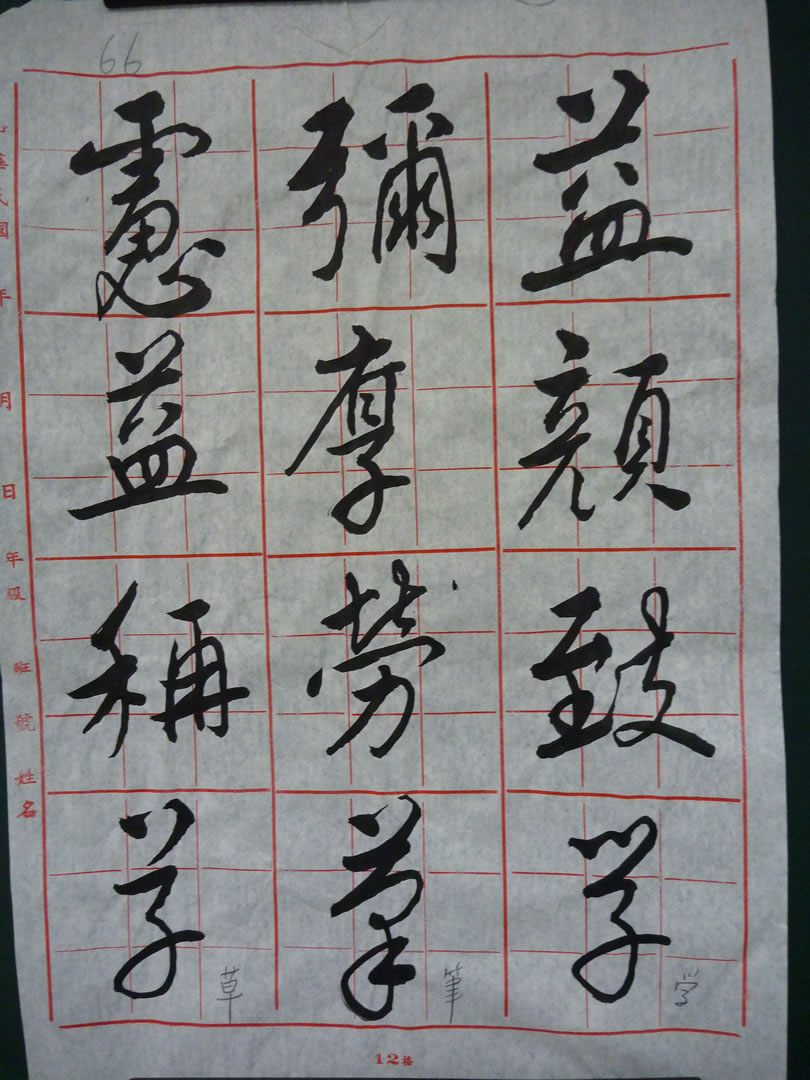 66
益顏致学
彌厚勞筆
慮益稱草
学
筆
草
中華民國 年 月 日 年級 班 號 姓名
12格